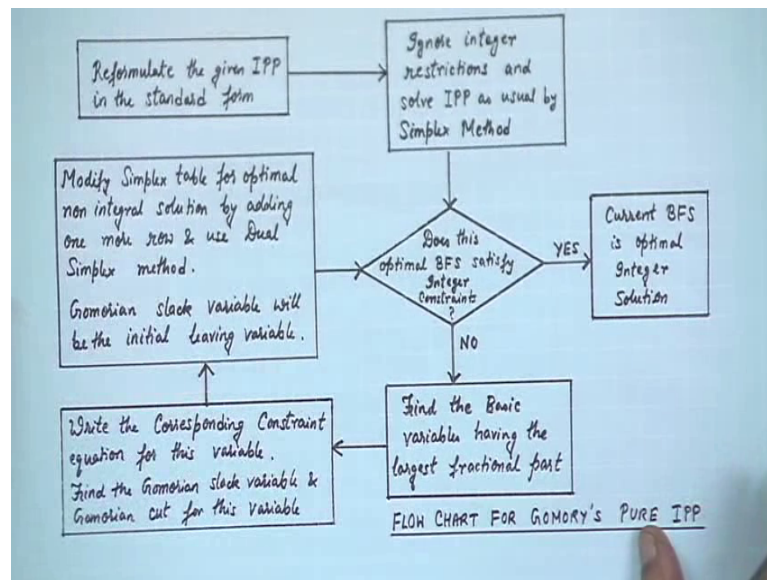 Reformulate the given IPP
in the standard form
Ignore integer
restrictions and
solve IPP as usual by
Simplex Method
Does this
optimal BFS satisfy
Integer
Constraints
?
YES
Current BFS
is optimal
Integer
Solution
NO
Find the Basic
variables having the
largest fractional part
Write the Corresponding Constraint
equation for this variable.
Find the Gomorian slack variable &
Gomorian cut for this variable
Modify Simplex table for optimal
non integral solution by adding
one more row & use Dual
Simplex method.
Gomorian slack variable will
be the initial leaving variable.
FLOW CHART FOR GOMORY'S PURE IPP